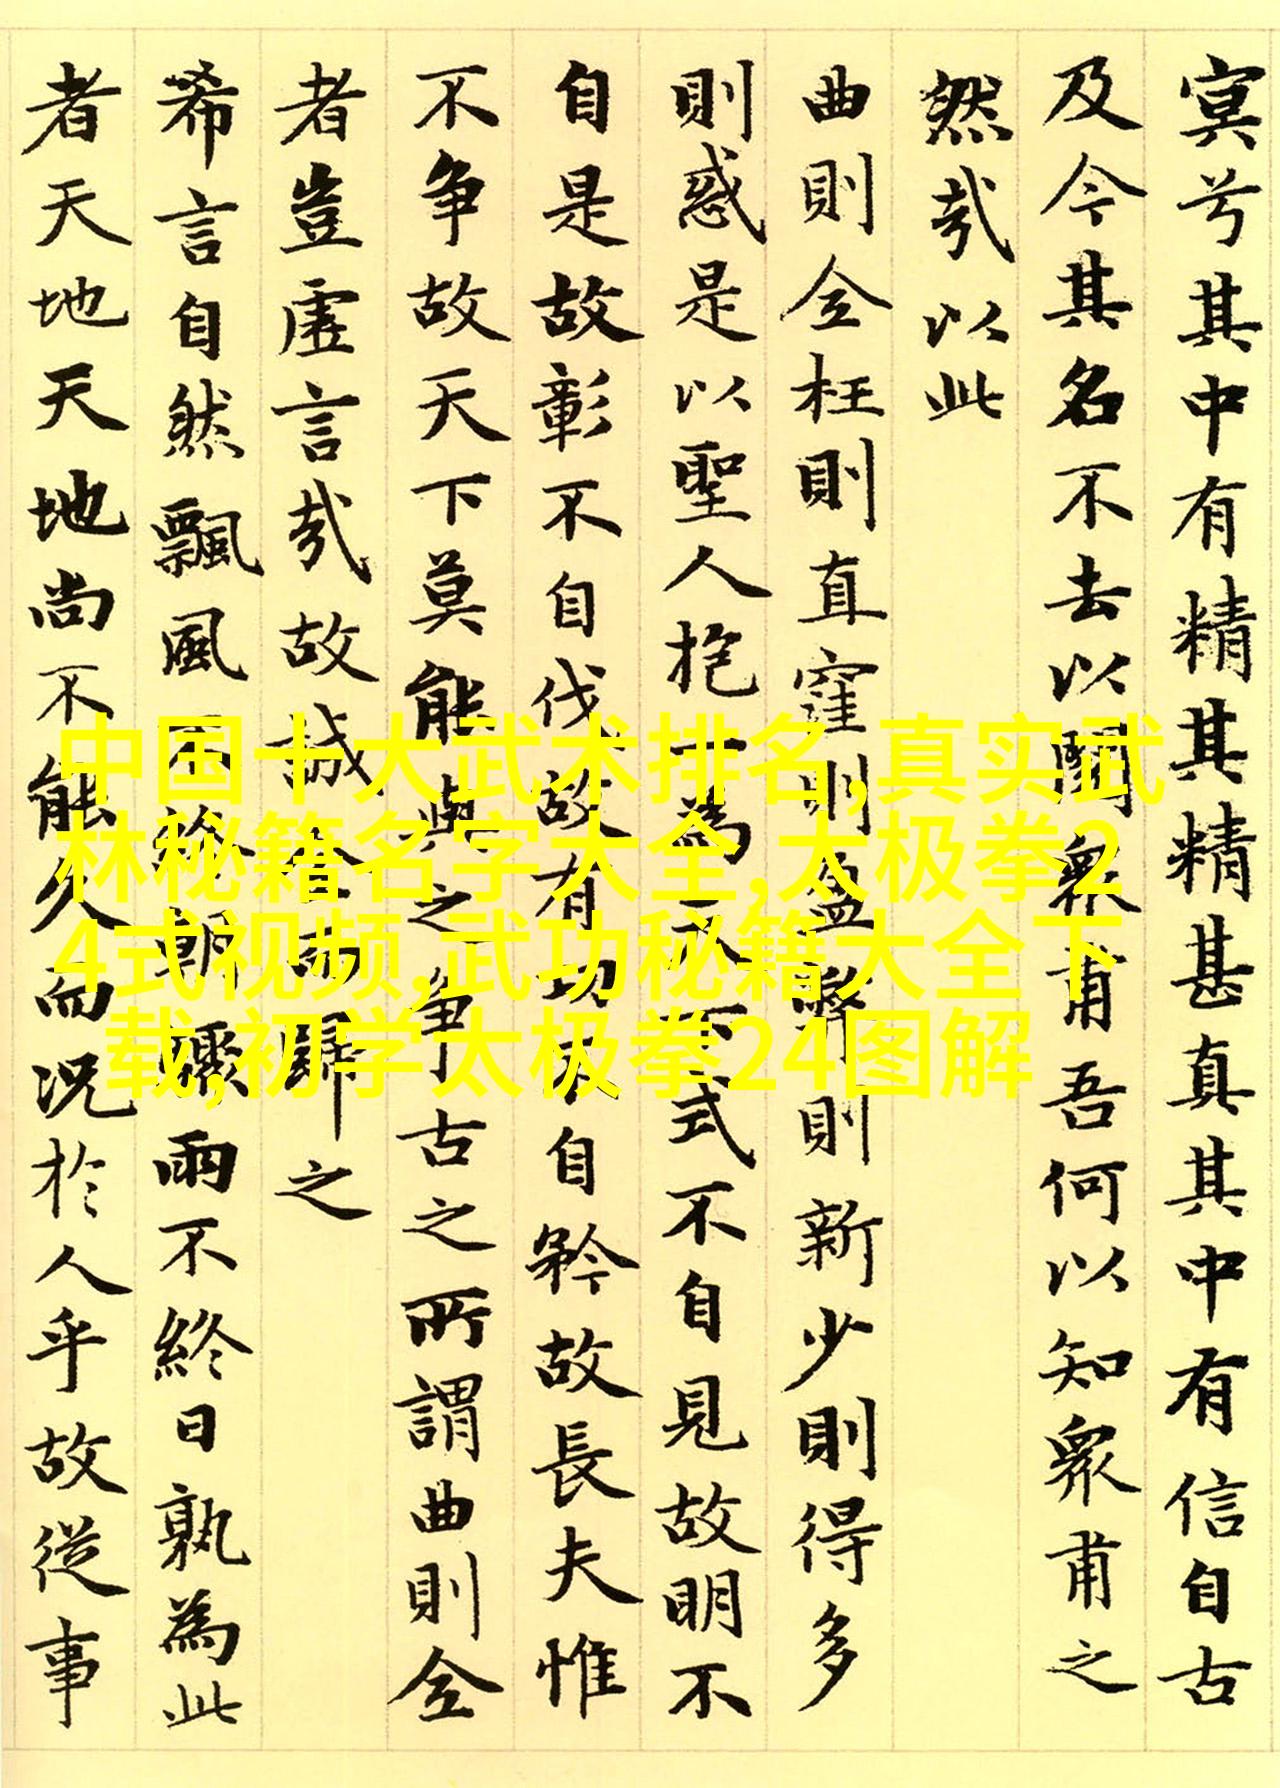 冥兮其中有精其精甚真其中有信自古
及今其名不去以閱衆甫吾何以知衆甫之
然哉以此
曲則全枉則直窪則盈弊則新少則得多
則惑是以聖人抱一為天下式不自見故明不
自是故彰不自伐故有功不自矜故長夫惟
不争故天下莫能與之争古之所謂曲則全
者豈虛言哉故誠全而歸之
希言自然飄風不終朝驟雨不終日孰為此
者天地天地尚不能久而況於人乎故從事
中国十大武术排名,真实武
林秘籍名字大全,太极拳2
4式视频,武功秘籍大全下
载,初学太极拳24图解